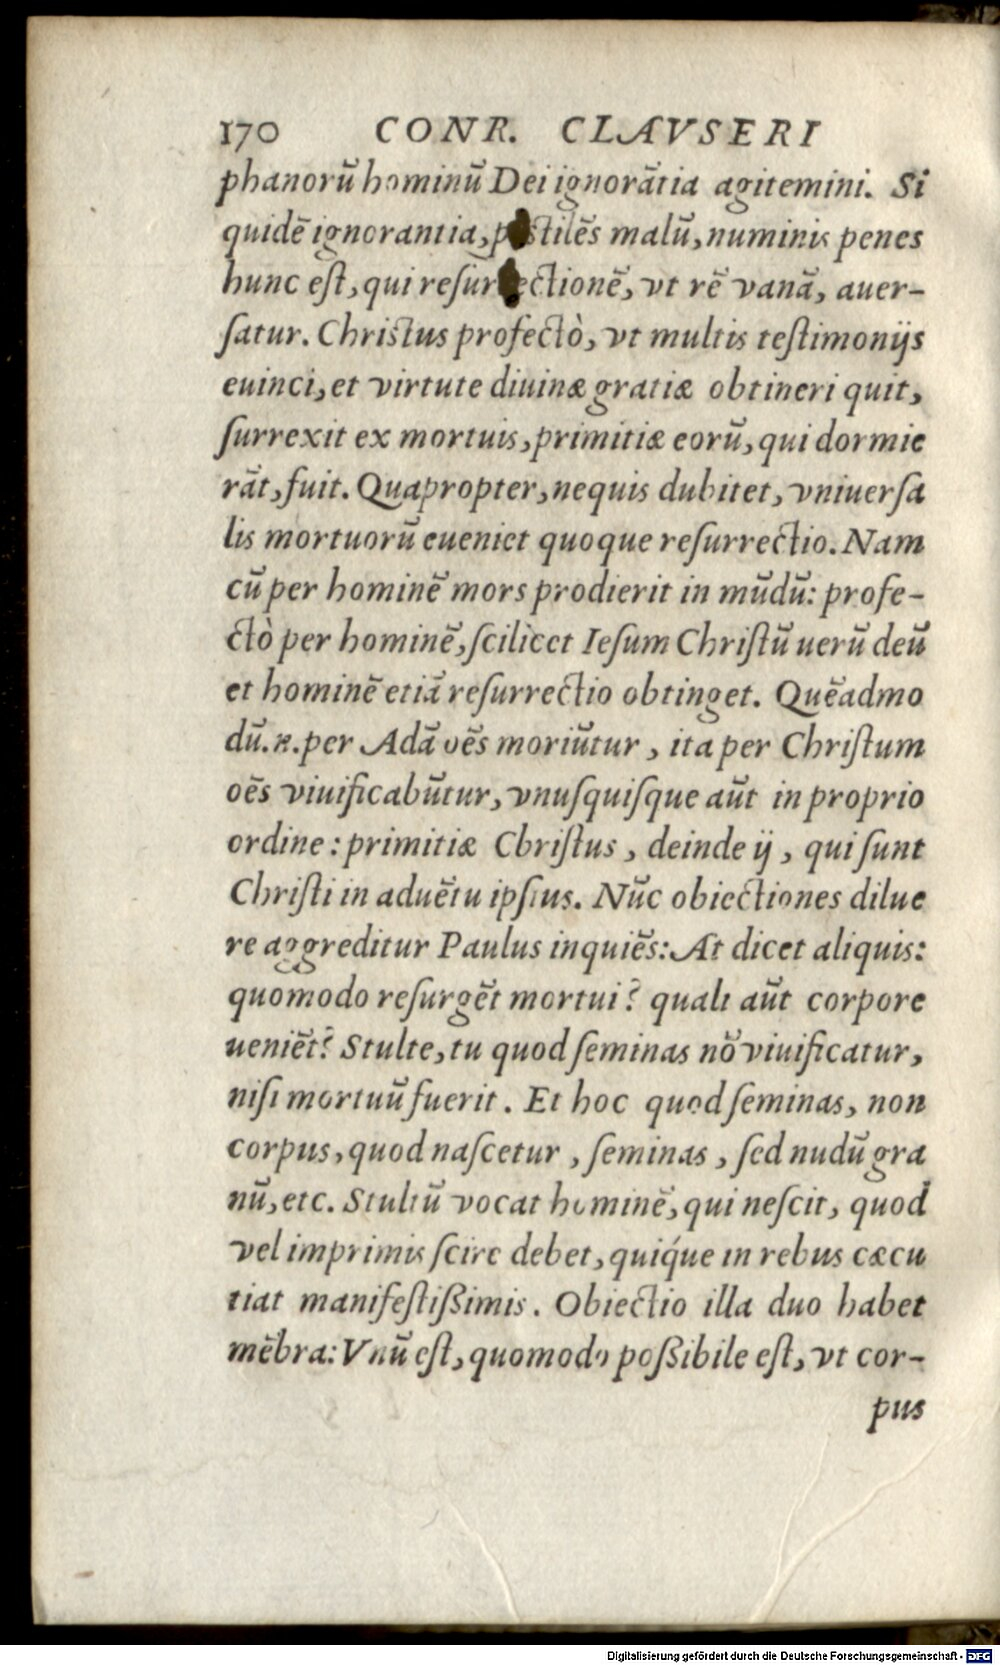 170 CONR. CLAVSERI
phanorũ hominũ Dei ignorãtia agitemini. Si
quidẽ ignorantia, pestilẽs malũ, numinis penes
hunc eſt, qui reſurrectionẽ, vt rẽ vanã, auer-
ſatur. Christus profectò, vt multis teſtimonijs
euinci, et virtute diuinæ gratiæ obtineri quit,
ſurrexit ex mortuis, primitiæ eorũ, qui dormie
rãt, fuit. Quapropter, nequis dubitet, vniuerſa
lis mortuorũ eueniet quoque reſurrectio. Nam
cũ per hominẽ mors prodierit in mũdũ: profe-
ctò per hominẽ, ſcilicet Ieſum Chriſtũ uerũ deũ
et hominẽ etiã reſurrectio obtinget. Quẽadmo
dũ. n. per Adã oẽs moriũtur, ita per Chriſtum
oẽs viuificabũtur, vnuſquiſque aũt in proprio
ordine: primitiæ Chriſtus, deinde ij, qui ſunt
Chriſti in aduẽtu ipſius. Nũc obiectiones dilue
re aggreditur Paulus inquiẽs: At dicet aliquis:
quomodo reſurgẽt mortui? quali aũt corpore
ueniẽt? Stulte, tu quod ſeminas nõ viuificatur,
niſi mortuũ fuerit. Et hoc quod ſeminas, non
corpus, quod naſcetur, ſeminas, ſed nudũ gra
nũ, etc. Stultũ vocat hominẽ, qui neſcit, quod
vel imprimis ſcire debet, quiq́ue in rebus cæcu
tiat manifeſtißimis. Obiectio illa duo habet
mẽbra: Vnũ eſt, quomodo poßibile eſt, vt cor-
pus
Digitalisierung gefördert durch die Deutsche Forschungsgemeinschaft - DFG